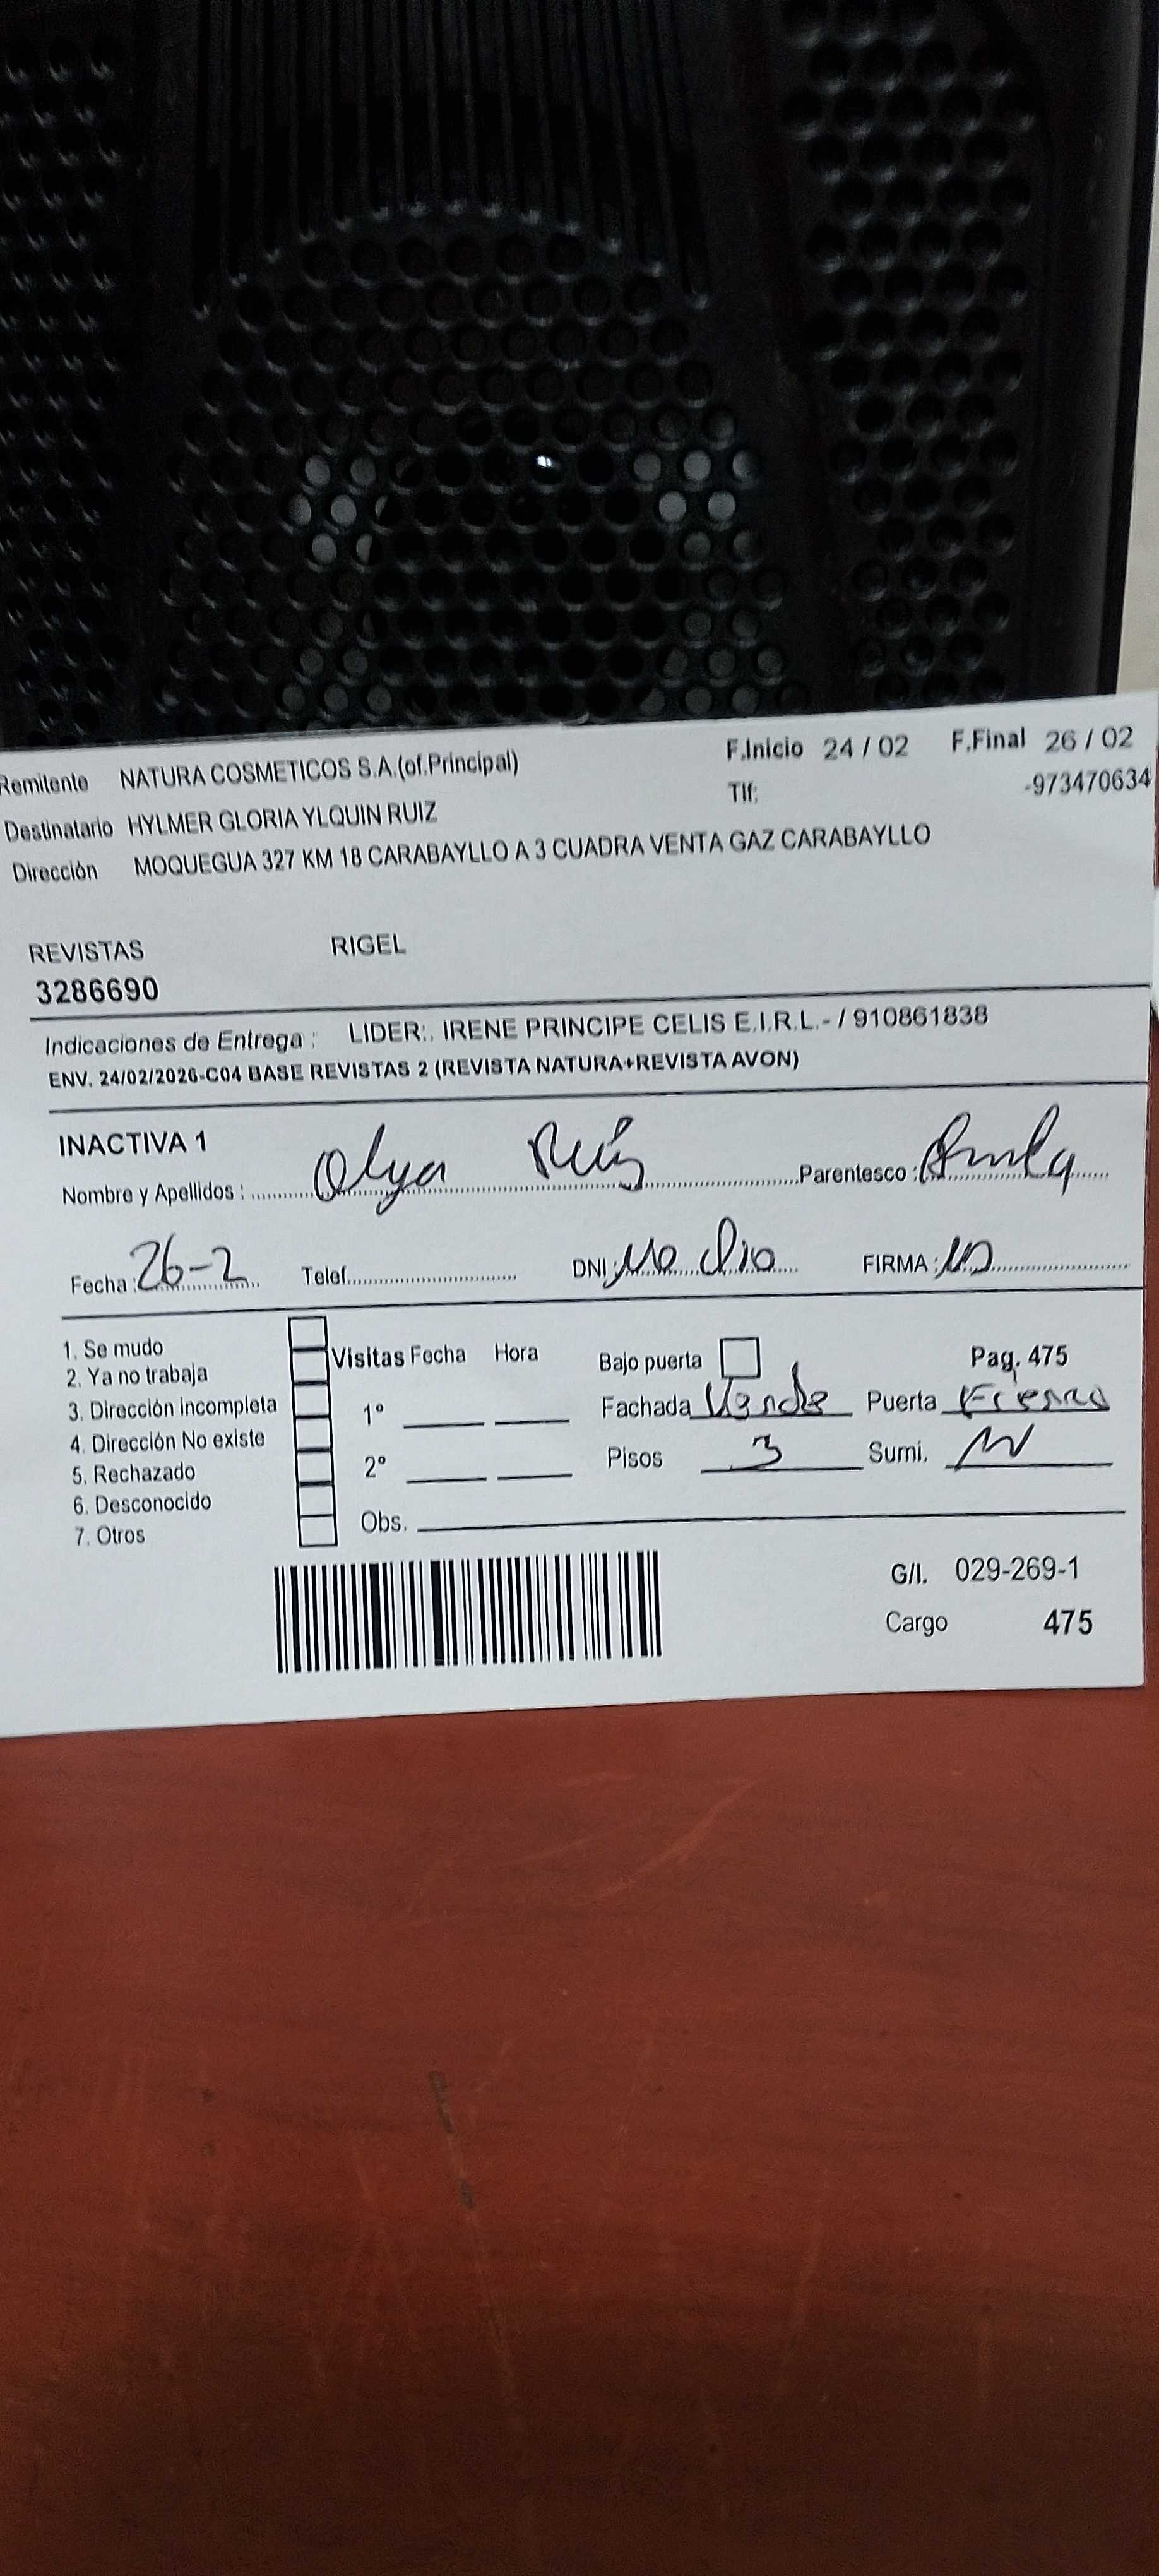 Remitente NATURA COSMETICOS S.A.(of.Principal) F.Inicio 24 / 02 F.Final 26 / 02
Tlf: -973470634
Destinatario HYLMER GLORIA YLQUIN RUIZ
Dirección MOQUEGUA 327 KM 18 CARABAYLLO A 3 CUADRA VENTA GAZ CARABAYLLO
REVISTAS RIGEL
3286690
Indicaciones de Entrega : LIDER:. IRENE PRINCIPE CELIS E.I.R.L.- / 910861838
ENV. 24/02/2026-C04 BASE REVISTAS 2 (REVISTA NATURA+REVISTA AVON)
INACTIVA 1
Nombre y Apellidos : Olga Ruiz Parentesco :
Fecha : 26-2 Telef. DNI : No dio FIRMA :
1. Se mudo
2. Ya no trabaja
3. Dirección incompleta
4. Dirección No existe
5. Rechazado
6. Desconocido
7. Otros
Visitas Fecha Hora
1°
2°
Obs.
Bajo puerta Pag. 475
Fachada Verde Puerta Fierro
Pisos 3 Sumi.
G/I. 029-269-1
Cargo 475